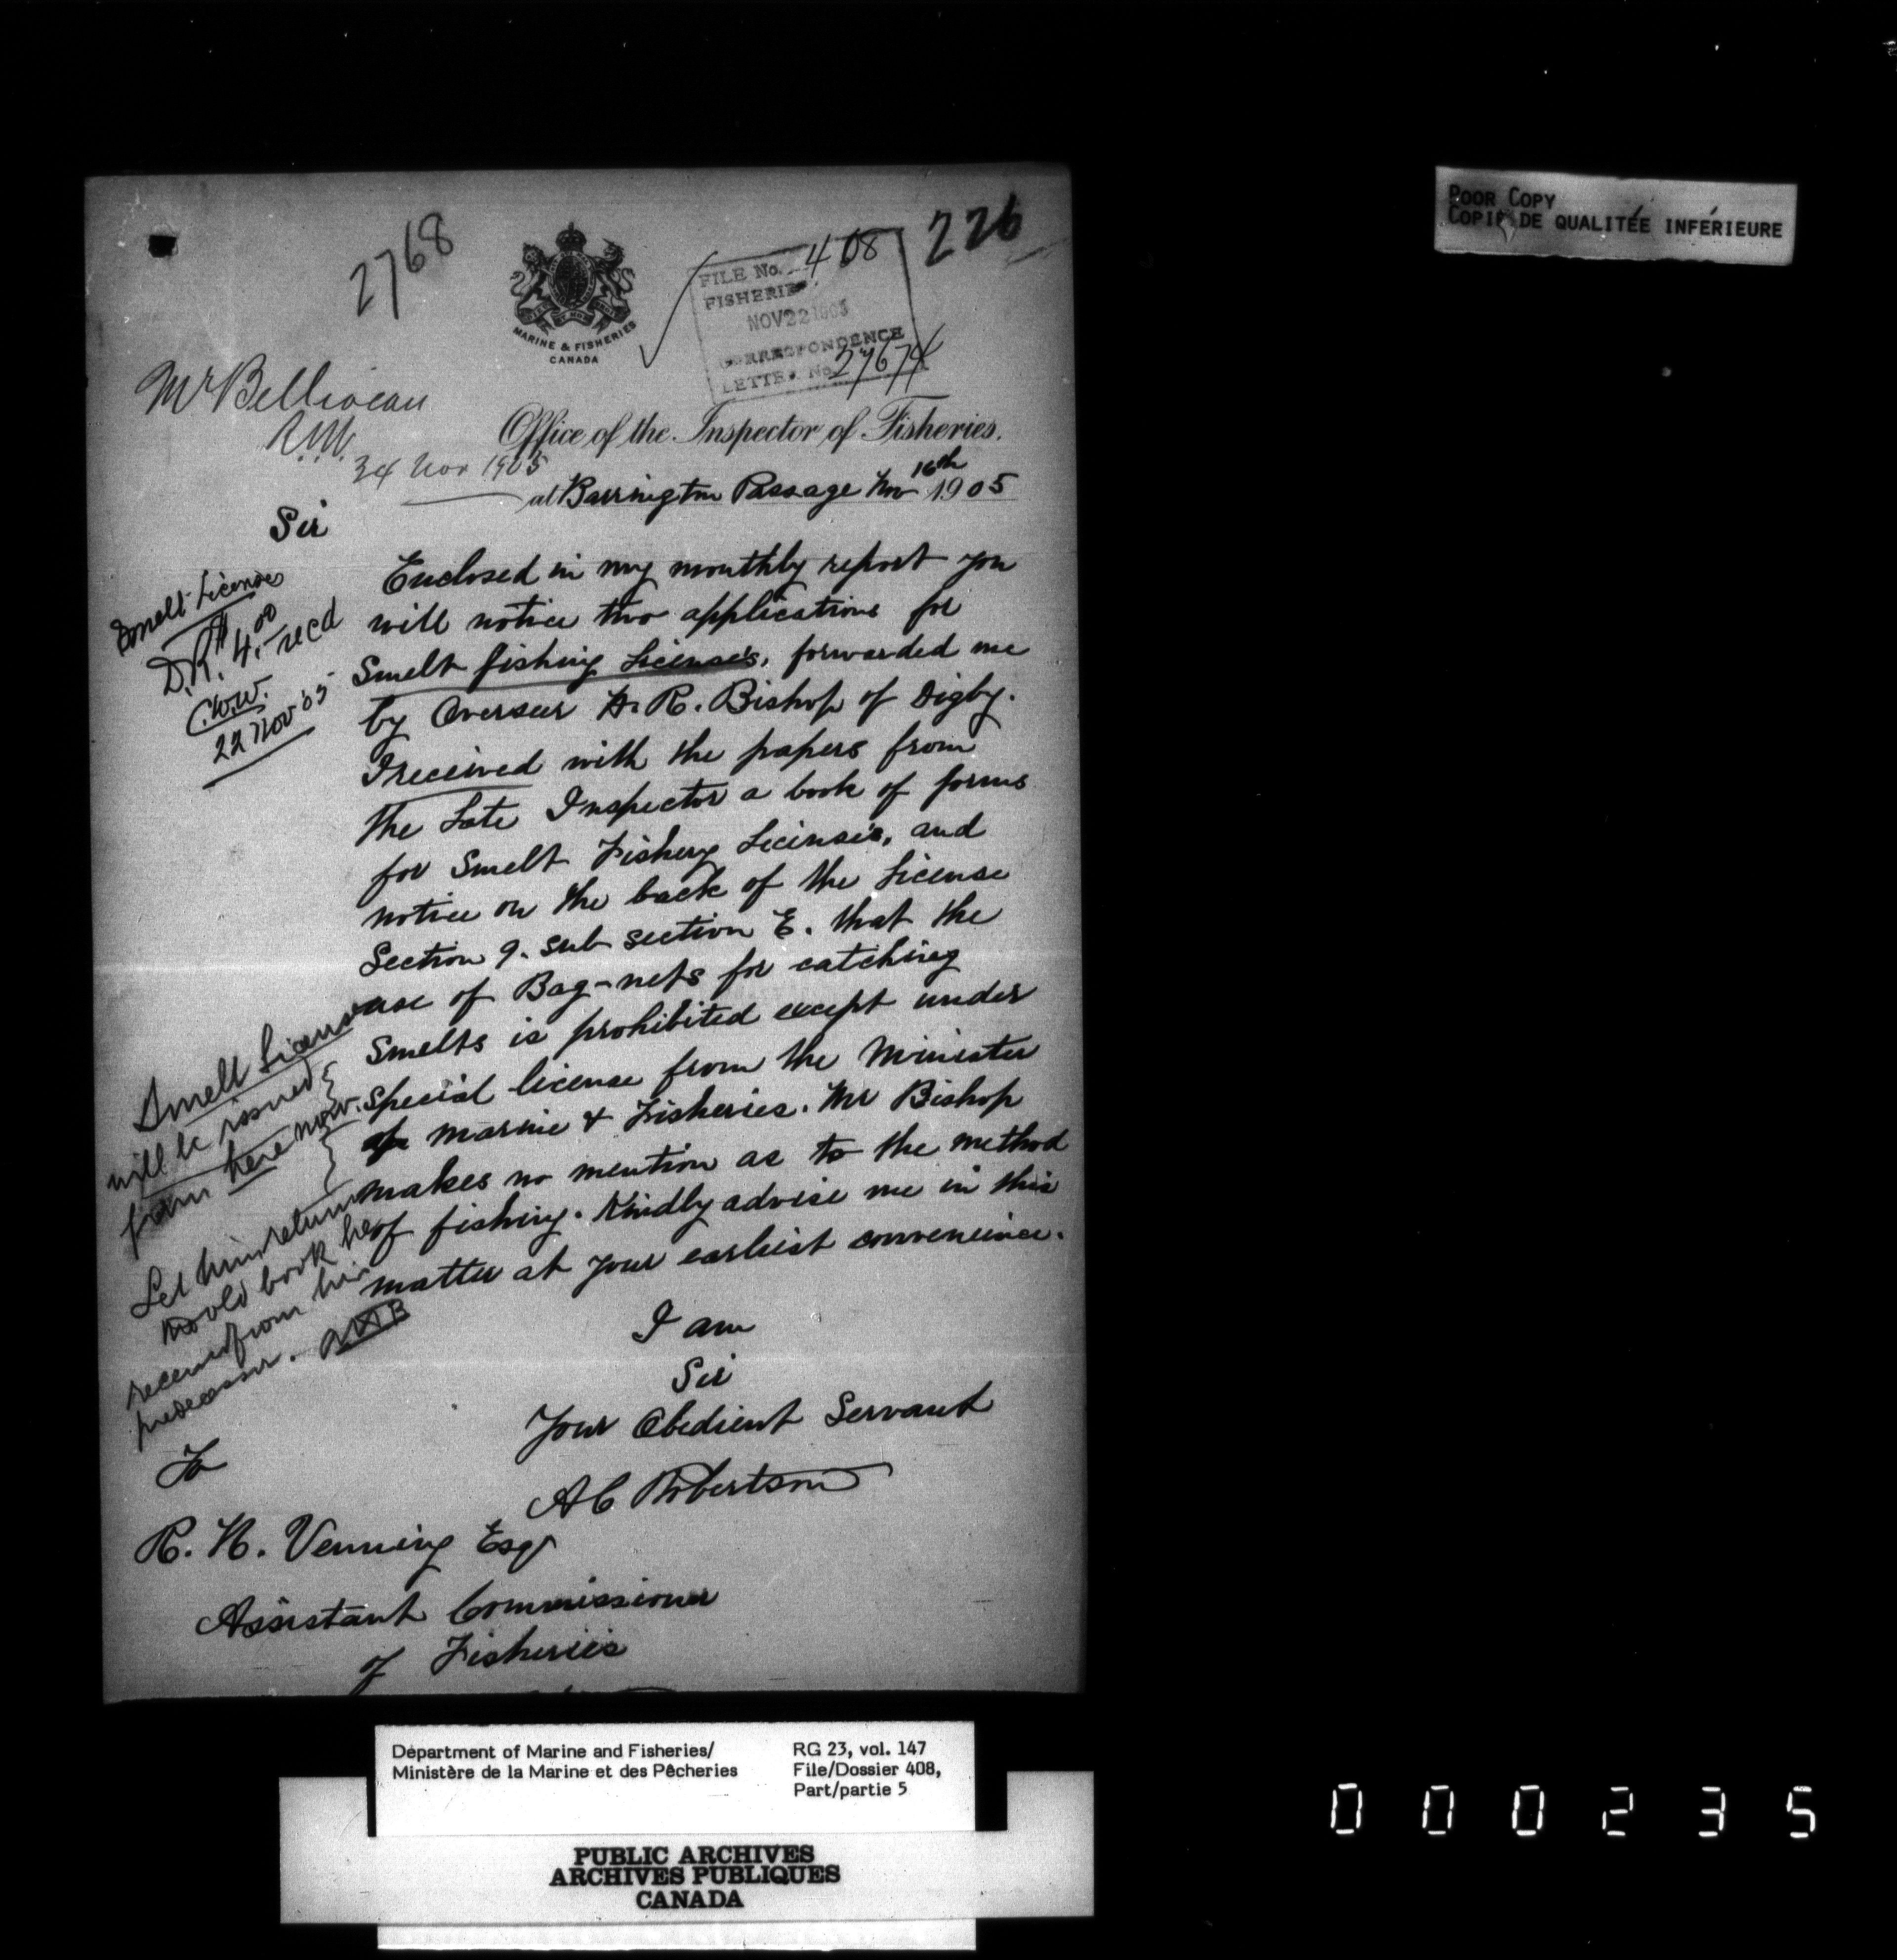 2768
226
MARINE & FISHERIES
CANADA
FILE No. 408
FISHERIES
NOV 22 1905
CORRESPONDENCE
LETTER No. 27674
POOR COPY
COPIE DE QUALITÉE INFÉRIEURE
Mr Belliveau
24 Nov 1905
Office of the Inspector of Fisheries.
at Barrington Passage Nov 16th 1905
Sir
Enclosed in my monthly report you
will notice two applications for
Smelt fishing Licenses, forwarded me
by Overseer H. R. Bishop of Digby.
I received with the papers from
the Late Inspector a book of forms
for Smelt Fishery Licenses, and
notice on the back of the License
Section 9. sub section E. that the
use of Bag-nets for catching
Smelts is prohibited except under
special license from the Minister
of Marine & Fisheries. Mr Bishop
makes no mention as to the method
of fishing. Kindly advise me in this
matter at your earliest convenience.
I am
Sir
Your Obedient Servant
A C Robertson
To
R. N. Venning Esqr
Assistant Commissioner
of Fisheries
Smelt License
D.R. $4.00 recd
C.W.W.
22 Nov '05
Smelt Licenses
will be issued
from here now.
Let him return
old book he
received from his
predecessor.
Department of Marine and Fisheries/
Ministère de la Marine et des Pêcheries
RG 23, vol. 147
File/Dossier 408,
Part/partie 5
PUBLIC ARCHIVES
ARCHIVES PUBLIQUES
CANADA
000235